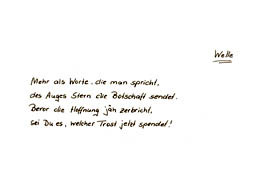 Welle
Mehr als Worte, die man spricht,
des Auges Stern die Botschaft sendet.
Bevor die Hoffnung jäh zerbricht,
sei Du es, welcher Trost jetzt spendet!